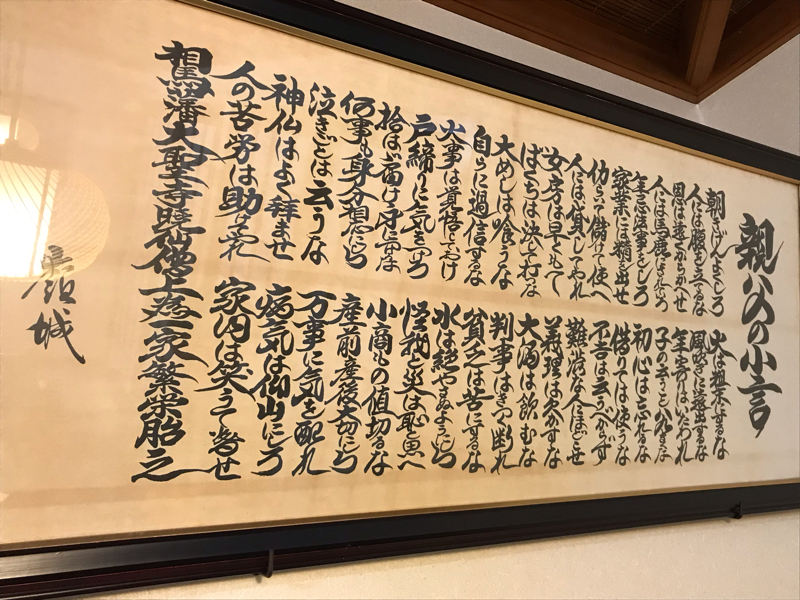 親父の小言
朝きげんよくしろ 火は粗末にするな
人には腹を立てるな 風吹きに遠出するな
恩は遠くからかくせ 年寄りはいたわれ
人には馬鹿にされていろ 子の云うこと八九はきくな
年忌法事をしろ 初心は忘れるな
家業には精を出せ 借りては使うな
仂らいて儲けて使へ 不吉は云うべからず
人には貸してやれ 難渋な人にほどこせ
女房は早くもて 義理は欠かすな
ばくちは決て打つな 大酒は飲むな
大めしは喰うな 判事はきつく断れ
自らに過信するな 貧乏は苦にするな
火事は覚悟しておけ 水は絶やさぬようにしろ
戸締りに気をつけろ 怪我と災は恥と思へ
拾はば届け身につけるな 小商もの値切るな
何事も身分相応にしろ 産前産後大切にしろ
泣きごとは云うな 万事に気を配れ
神仏はよく拝ませ 病気は仰山にしろ
人の苦労は助けてやれ 家内は笑うて暮せ
相馬藩大聖寺暁仙僧上為一家繁栄貽之